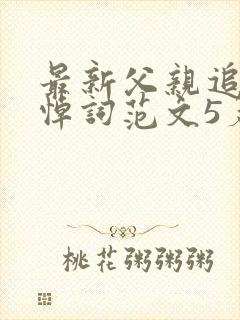 最新父親追
悼詞范文5
桃花粥粥粥